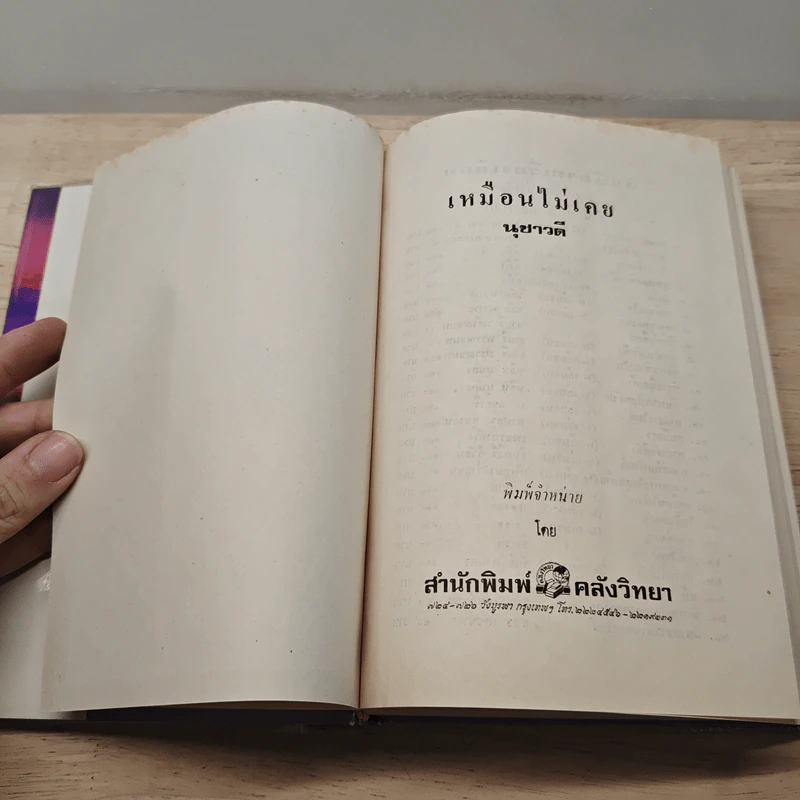 เหมือนไม่เคย
นุชาวดี
พิมพ์จำหน่าย
โดย
สำนักพิมพ์ คลังวิทยา
๗๒๔-๗๒๖ วังบูรพา กรุงเทพฯ โทร. ๒๒๒๔๕๔๖-๒๒๑๙๒๓๑